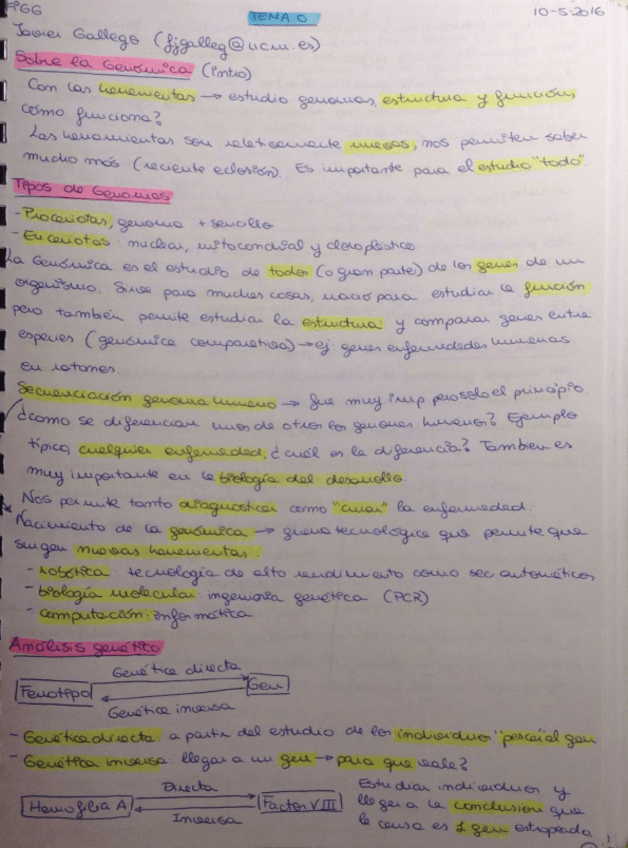 FPGG TEMA 0 10-5-2016
Javier Gallego (fjgalleg@ucm.es)
Sobre la Genómica (intro)
Con las herramientas → estudio genomas, estructura y función,
cómo funciona?
Las herramientas son relativamente nuevas, nos permiten saber
mucho más (reciente eclosión). Es importante para el estudio "todo".
Tipos de Genomas
- Procariotas, genoma + sencillo
- Eucariotas: nuclear, mitocondrial y cloroplástico
La Genómica es el estudio de todos (o gran parte) de los genes de un
organismo. Sirve para muchas cosas, nació para estudiar la función
pero también permite estudiar la estructura y comparar genes entre
especies (genómica comparativa) → ej: genes enfermedades humanas
en ratones.
Secuenciación genoma humano → fue muy imp pero solo el principio.
¿cómo se diferencian unos de otros los genomas humanos? Ejemplo
típico, cualquier enfermedad, ¿cuál es la diferencia? También es
muy importante en la biología del desarrollo.
Nos permite tanto diagnosticar como "curar" la enfermedad.
Nacimiento de la genómica → guerra tecnológica que permite que
surgen nuevas herramientas:
- robótica: tecnología de alto rendimiento como sec automáticos
- biología molecular: ingeniería genética (PCR)
- computación: informática
Análisis genético
Genética directa
Fenotipo Gen
Genética inversa
- Genética directa: a partir del estudio de los individuos "pescar" el gen
- Genética inversa: llegar a un gen → para que vale?
Directa
Hemofilia A Factor VIII
Inversa
Estudiar individuos y
llegar a la conclusión que
la causa es 1 gen estropeado